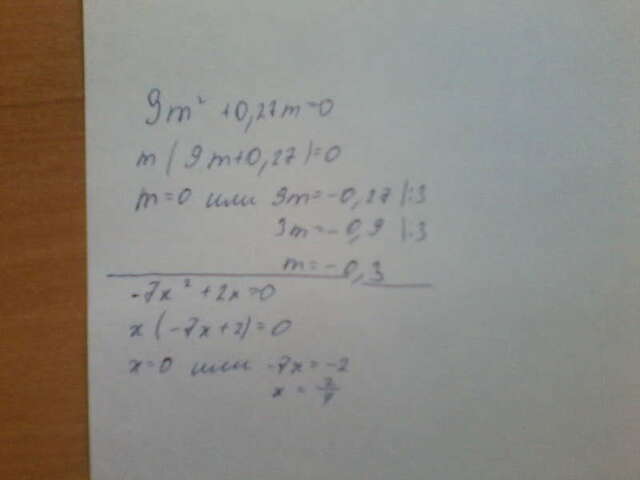 9m² +0,27m=0
m(9m+0,27)=0
m=0 или 9m=-0,27 |:3
3m=-0,9 |:3
m=-0,3
-7x²+2x=0
x(-7x+2)=0
x=0 или -7x=-2
x = 2/7